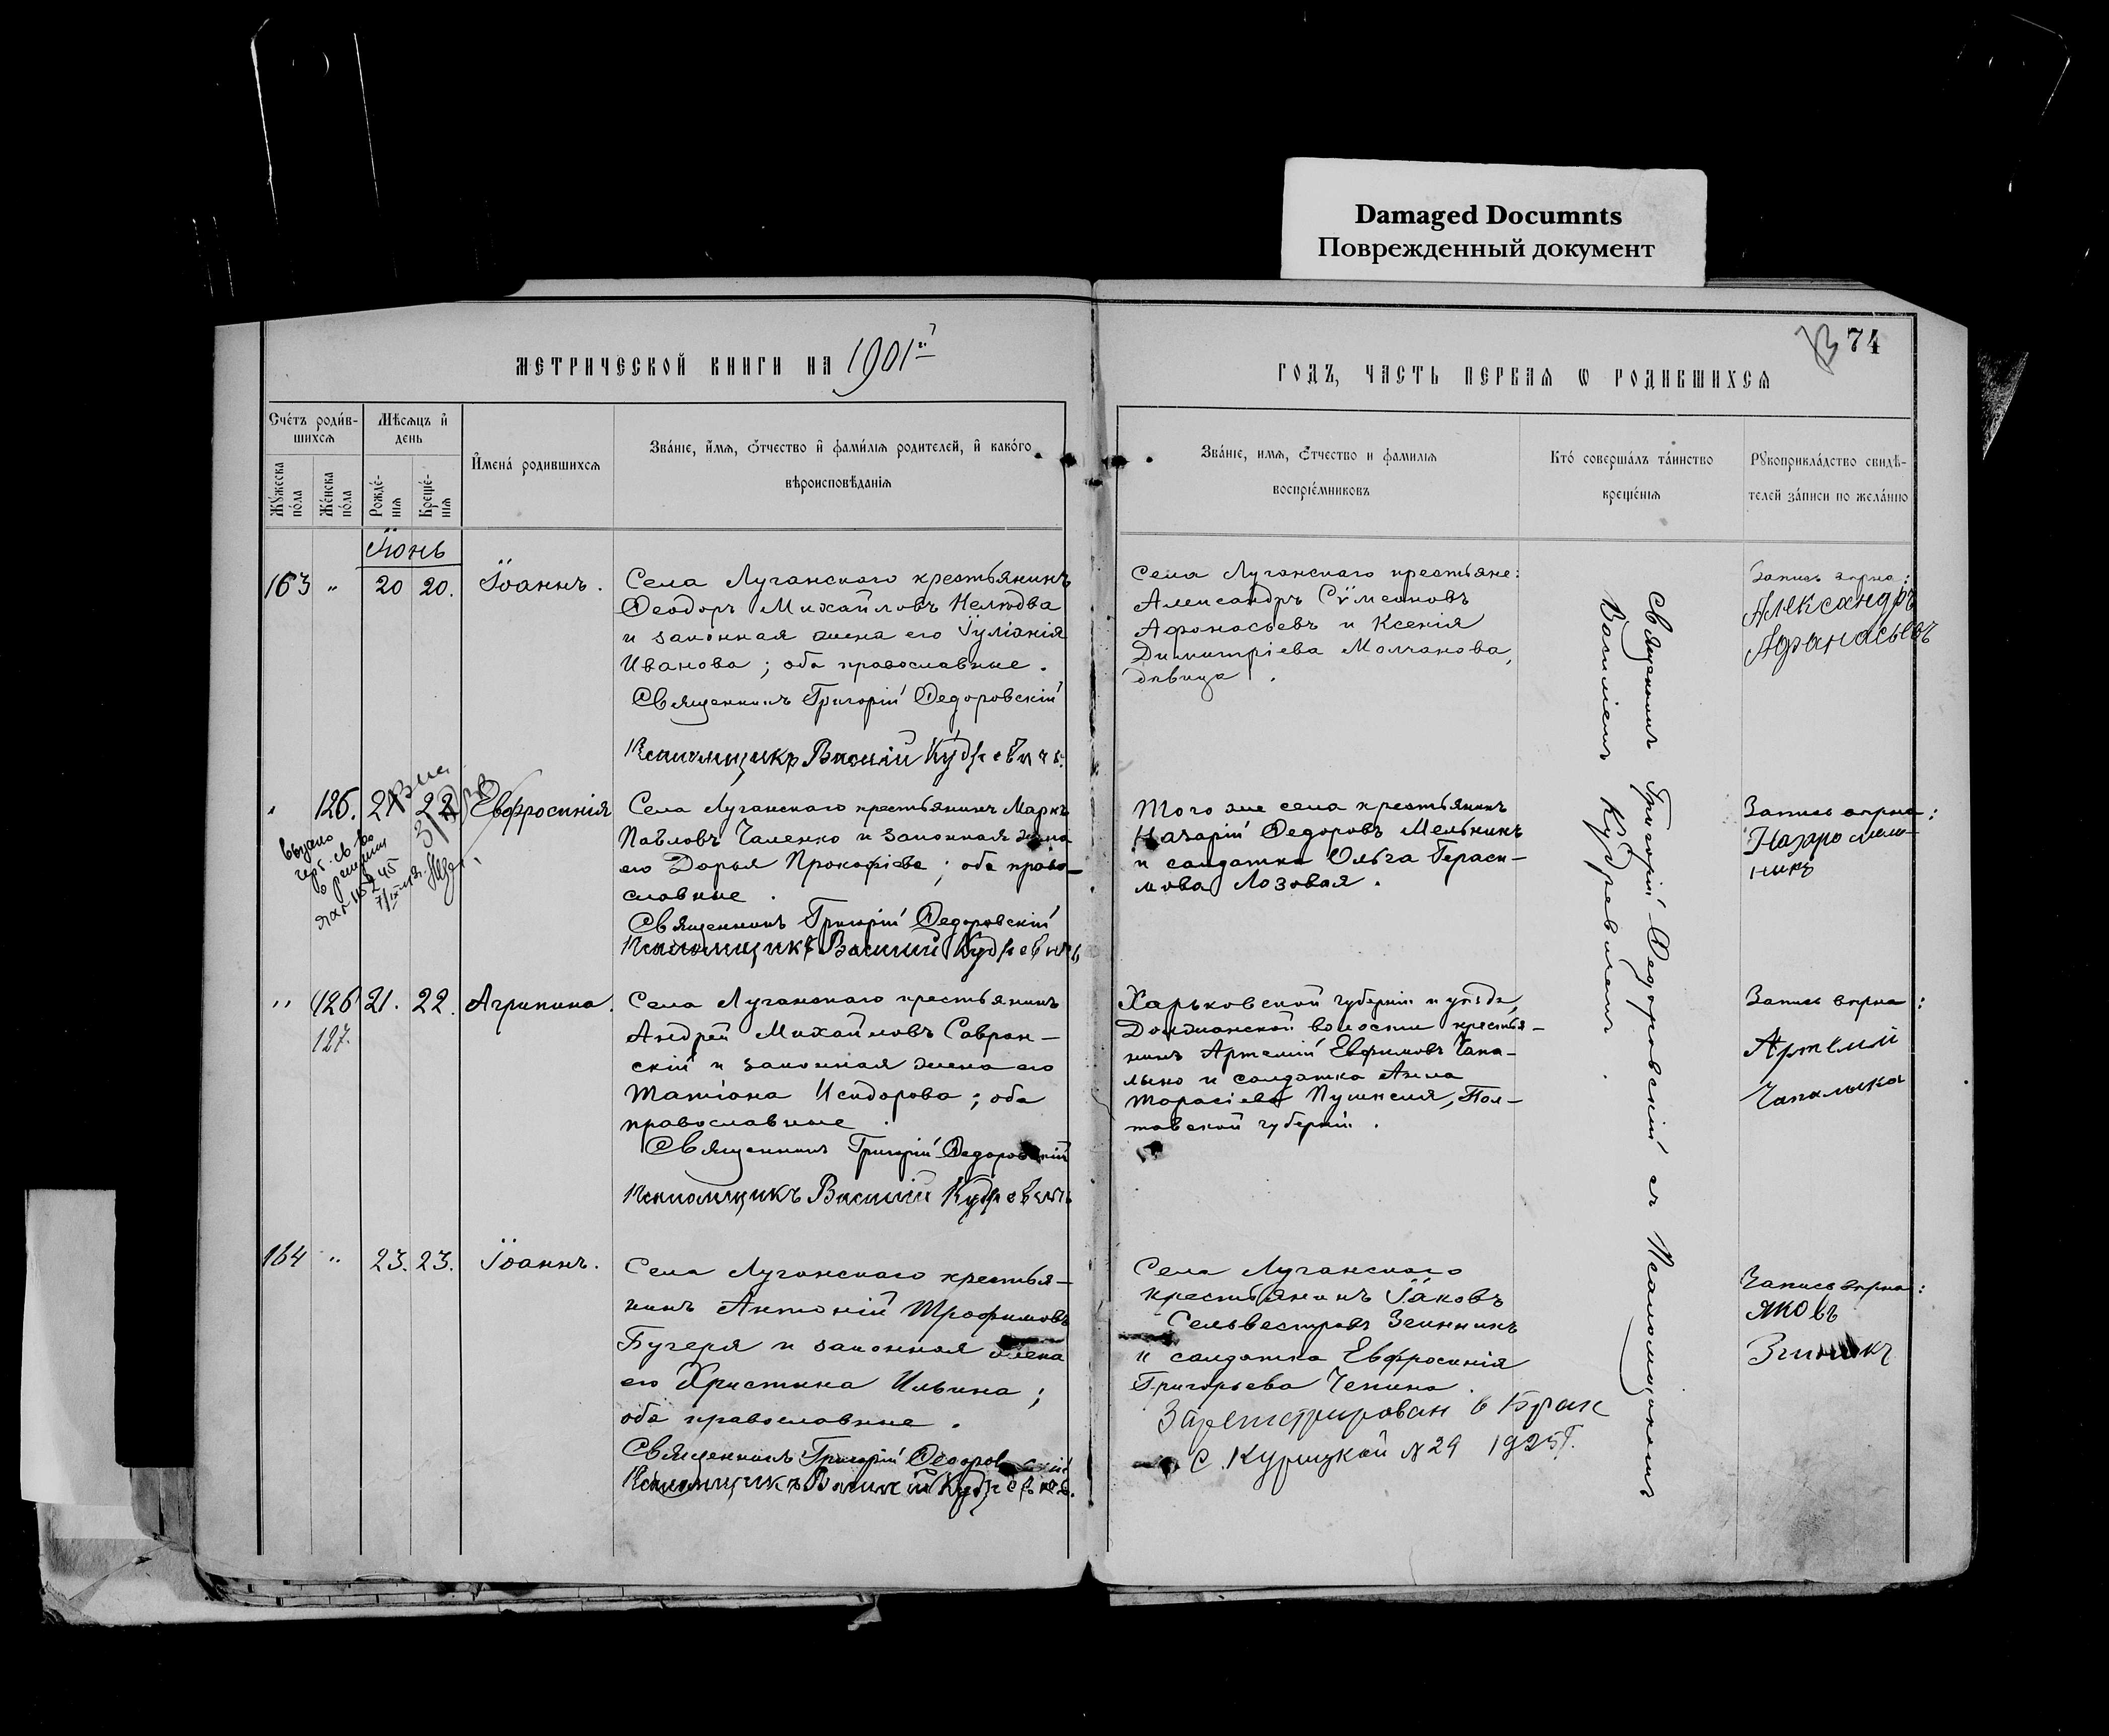 Damaged Documnts
Поврежденный документ
74
МЕТРИЧЕСКОЙ КНИГИ НА 1901й
ГОДЪ, ЧАСТЬ ПЕРВАЯ Ѡ РОДИВШИХСЯ
Счетъ родив-
шихся
Мѣсяцъ и
день
Имена родившихся
Званіе, имя, отчество и фамилія родителей, и какого
вѣроисповѣданія
Званіе, имя, отчество и фамилія
воспріемниковъ
Кто совершалъ таинство
крещенія
Рукоприкладство свидѣ-
телей записи по желанію
Мужеска
пола
Женска
пола
Рожде-
нія
Креще-
нія
Іюнь
163 " 20 20. Іоаннъ.
Села Луганскаго крестьянинъ
Ѳеодоръ Михайловъ Нелюдва
и законная жена его Іуліанія
Иванова; оба православные.
Священникъ Григорій Ѳедоровскій
Псаломщикъ Василій Кудревичъ.
Села Луганскаго крестьяне:
Александръ Сѵмеоновъ
Афонасьевъ и Ксенія
Димитріева Молчанова,
дѣвица.
Запись вѣрна:
Александръ
Афанасьевъ
" 126. 21 22 Евфросинія
выдано
Села Луганскаго крестьянинъ Маркъ
Павловъ Чаленко и законная жена
его Дарья Прокофіева; оба право-
славные.
Священникъ Григорій Ѳедоровскій
Псаломщикъ Василій Кудревичъ
Того же села крестьянинъ
Назарій Ѳедоровъ Мельникъ
и солдатка Ольга Гераси-
мова Лозовая.
Запись вѣрна:
" 126 21. 22. Агрипина.
127.
Села Луганскаго крестьянинъ
Андрей Михайловъ Савран-
скій и законная жена его
Татіана Исидорова; оба
православные.
Священникъ Григорій Ѳедоровскій
Псаломщикъ Василій Кудревичъ
Харьковской губерніи и уѣзда,
волости крестья-
нинъ Артемій Евфимовъ Чапа-
лыко и солдатка Анна
Тарасіева Пушкеля, Пол-
тавской губерніи.
Запись вѣрна:
Артемий
Чапалыка
164 " 23. 23. Іоаннъ.
Села Луганскаго крестья-
нинъ Антоній Трофимовъ
Бугеря и законная жена
его Христина Ильина;
оба православные.
Священникъ Григорій Ѳедоровскій
Псаломщикъ Василій Кудревичъ.
Села Луганскаго
крестьянинъ Іаковъ
Сельвестровъ Зеинникъ
и солдатка Евфросинія
Григорьева Чепина.
Зарегистрирован в Брак
с. Курицкой № 29 1925 г.
Запись вѣрна:
Яковъ
Священникъ Григорій Ѳедоровскій съ Псаломщикомъ
Василіемъ Кудревичемъ.